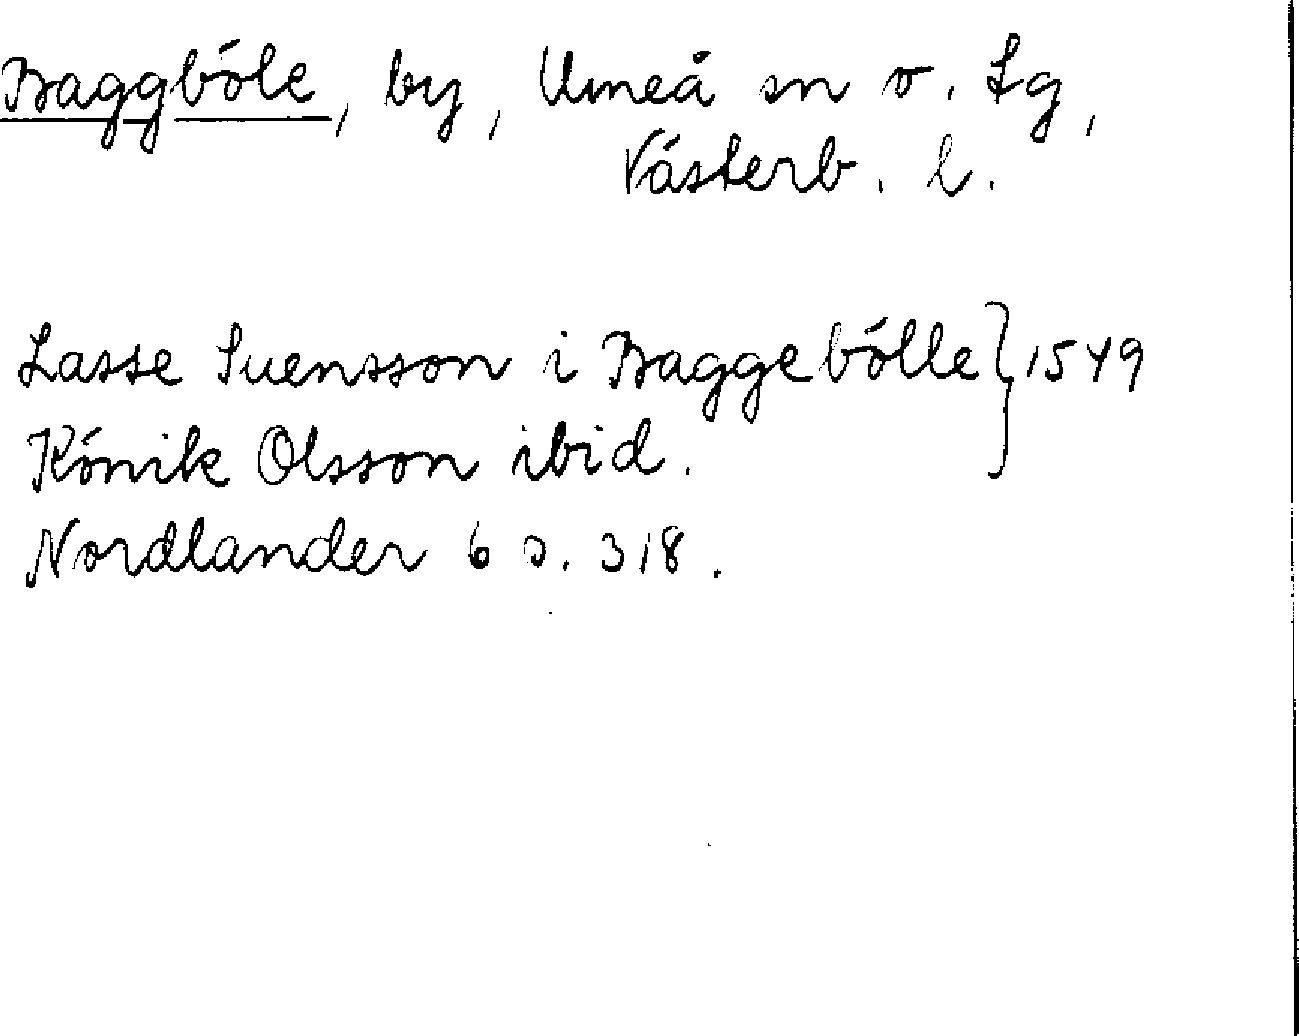 Baggböle, by, Umeå sn o. Lg,
Västerb. l.
Lasse Suensson i Baggebölle } 1549
Könik Olsson ibid.
Nordlander 6 s. 318.